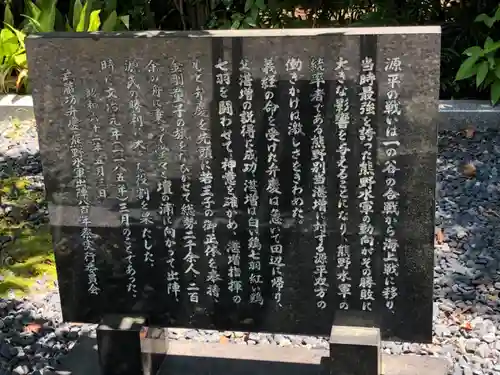 源平の戦いは一の谷の合戦から海上戦に移り、
当時最強を誇った熊野水軍の動向がその勝敗に
大きな影響を与えることになり、熊野水軍の
統率者である熊野別当湛増に対する源平双方の
働きかけは激しさをきわめた。
義経の命を受けた弁慶は急いで田辺に帰り、
父湛増の説得に成功、湛増は白い鶏七羽紅い鶏
七羽を闘わせて、神意を確かめ、湛増指揮の
もと弁慶を先頭に若王子の御正体を奉持
金剛童子の旗をなびかせて総勢二千余人、二百
余の舟に乗って壇の浦に向かって出陣、
源氏の勝利に大
時に文治元年（一一八五年）三月のことであった。
昭和六十二年五月三日
武蔵坊弁慶・熊野水軍出陣八百年祭実行委員会